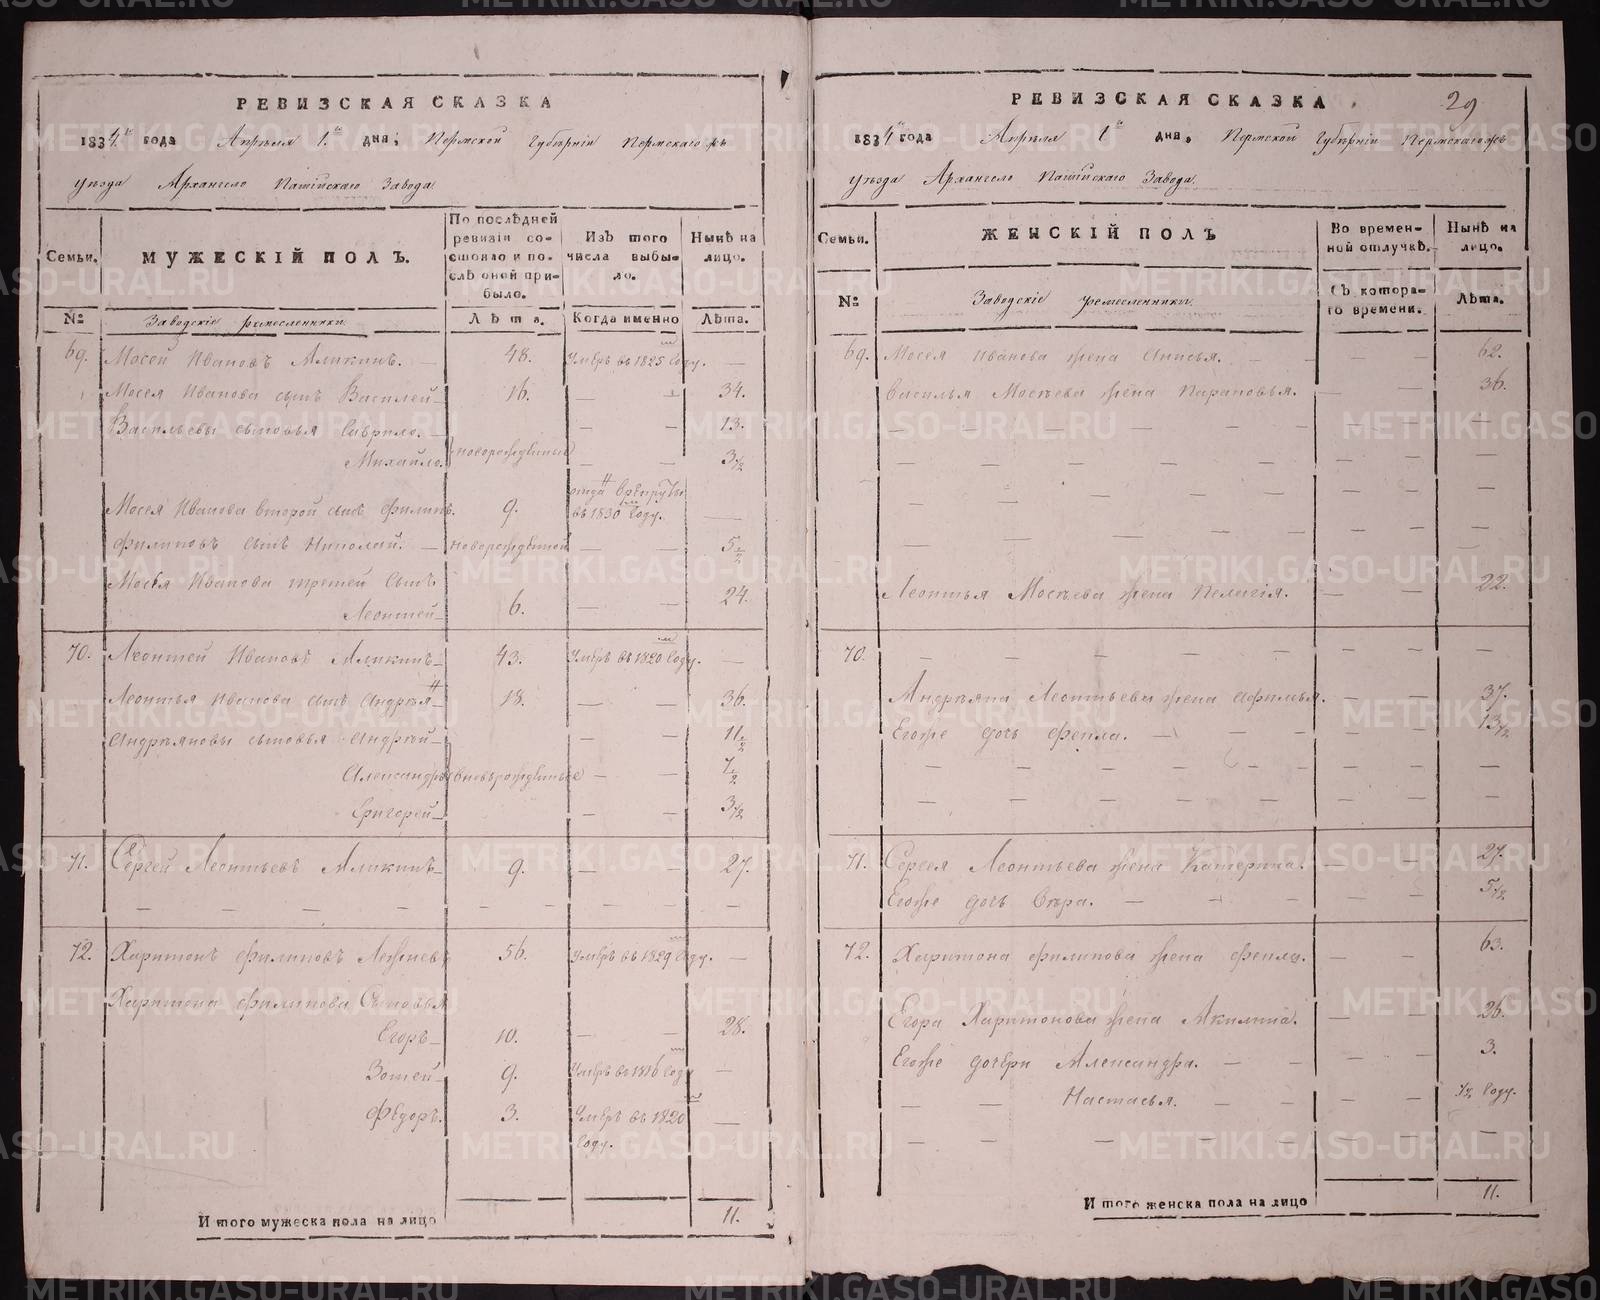 РЕВИЗСКАЯ СКАЗКА
1834го года Апреля 1го дня; Пермской Губерніи Пермскаго
уѣзда Архангело Пашійскаго Завода
Семьи.
МУЖЕСКІЙ ПОЛЪ.
По послѣдней
ревизіи со-
стояло и по-
слѣ оной при-
было.
Изъ того
числа выбы-
ло.
Нынѣ на
лицо.
№
Заводскіе ремесленники
Лѣта.
Когда именно
Лѣта.
69. Мосей Ивановъ Аликинъ. 48. Умеръ въ 1825 году. —
Мосея Иванова сынъ Василей 16. — — 34.
Васильевы сыновья Гаврило. — — 13.
Михайло. новорожденные — — 3 1/2
Мосея Иванова второй сынъ Филипъ. 9. отданъ в рекруты въ 1830м году. —
Филиповъ сынъ Николай. новорожденной — — 5 1/2
Мосея Иванова третей сынъ
Леонтей 6. — — 24.
70. Леонтей Ивановъ Аликинъ 43. Умеръ въ 1820 году. —
Леонтья Иванова сынъ Андреянъ 18. — — 36.
Андреяновы сыновья Андрей — — 11 1/2
Александръ вновьрожденные — — 7 1/2
Григорей — — 3 1/2
71. Сергей Леонтьевъ Аликинъ 9. — — 27.
72. Харитонъ Филиповъ 56. Умеръ въ 1829 году. —
Харитона Филипова Сыновья
Егоръ 10. — — 28.
Зотей 9. Умеръ въ 1816 году —
Федоръ. 3. Умеръ въ 1820 —
году.
И того мужеска пола на лицо 11.
РЕВИЗСКАЯ СКАЗКА 29
1834го года Апреля 1го дня, Пермской Губерніи Пермскаго
уѣзда Архангело Пашійскаго Завода.
Семьи.
ЖЕНСКІЙ ПОЛЪ
Во времен-
ной отлучкѣ.
Нынѣ на
лицо.
№
Заводскіе ремесленники.
Съ котора-
го времени.
Лѣта.
69. Мосея Иванова жена Анисья. — — 62.
Василья Мосеева жена Парасковья. — — 36.
Леонтья Мосеева жена Пелагія. — — 22.
70. — — — — —
Андреяна Леонтьева жена Афимья. — — 37.
Егоже дочь Фекла. — — 13 1/2
71. Сергея Леонтьева жена Катерина. — — 27.
Егоже дочь Вера. — — 5 1/2
72. Харитона Филипова жена Фекла. — — 63.
Егора Харитонова жена Акилина. — — 26.
Егоже дочери Александра. — — 3.
Настасья. — — 1/2 году.
И того женска пола на лицо 11.
METRIKI.GASO-URAL.RU